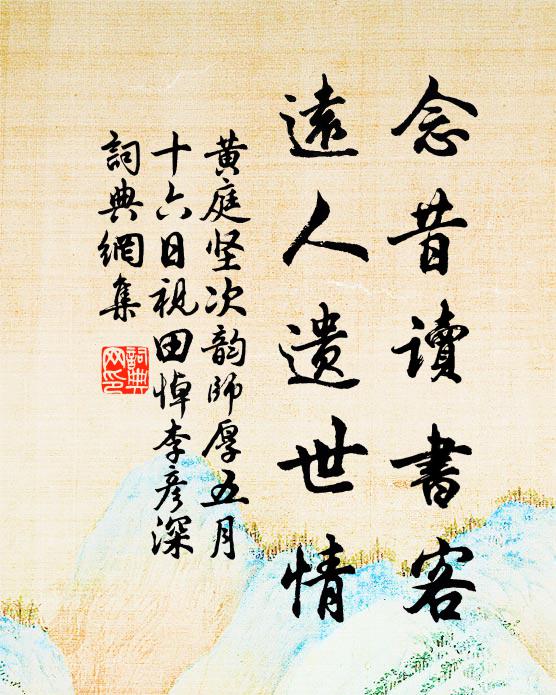 念昔讀書客
遠人遺世情
黄庭坚次韵師厚五月
十六日視田悼李彦深
詞典網集
詞典網印